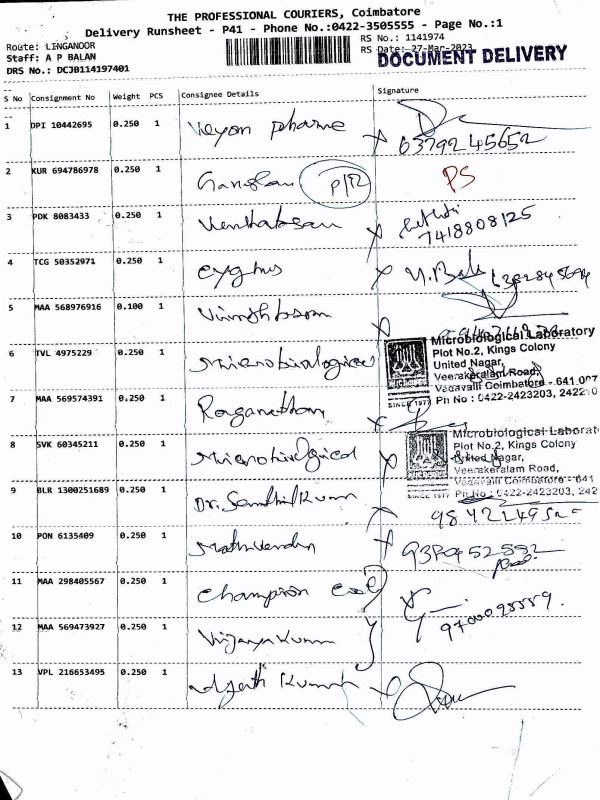 THE PROFESSIONAL COURIERS, Coimbatore
Delivery Runsheet - P41 - Phone No.:0422-3505555 - Page No.:1
Route: LINGANOOR
RS No.: 1141974
Staff: A P BALAN
RS Date: 27-Mar-2023
DRS No.: DCJB114197401
DOCUMENT DELIVERY
S No Consignment No Weight PCS Consignee Details Signature
1 DPI 10442695 0.250 1 pharme 6379245652
2 KUR 694786978 0.250 1 P12 PS
3 PDK 8083433 0.250 1 Venkatesan 7418808125
4 TCG 50352971 0.250 1 cygnus
5 MAA 568976916 0.100 1
6 TVL 4975229 0.250 1 Microbiological
Microbiological Laboratory
Plot No.2, Kings Colony
United Nagar,
Veerakeralam Road,
Vadavalli Coimbatore - 641 007
SINCE 1977 Ph No : 0422-2423203, 242210
7 MAA 569574391 0.250 1 Raganathan
8 SVK 60345211 0.250 1 Microbiological
Microbiological Laborat
Plot No.2, Kings Colony
United Nagar,
Veerakeralam Road,
Vadavalli Coimbatore - 641
SINCE 1977 Ph No : 0422-2423203, 242
9 BLR 1300251689 0.250 1 Dr. Senthil Kumar
10 PON 6135409 0.250 1
11 MAA 298405567 0.250 1 Champion
12 MAA 569473927 0.250 1 Vijaya Kumar
13 VPL 216653495 0.250 1 Kumar